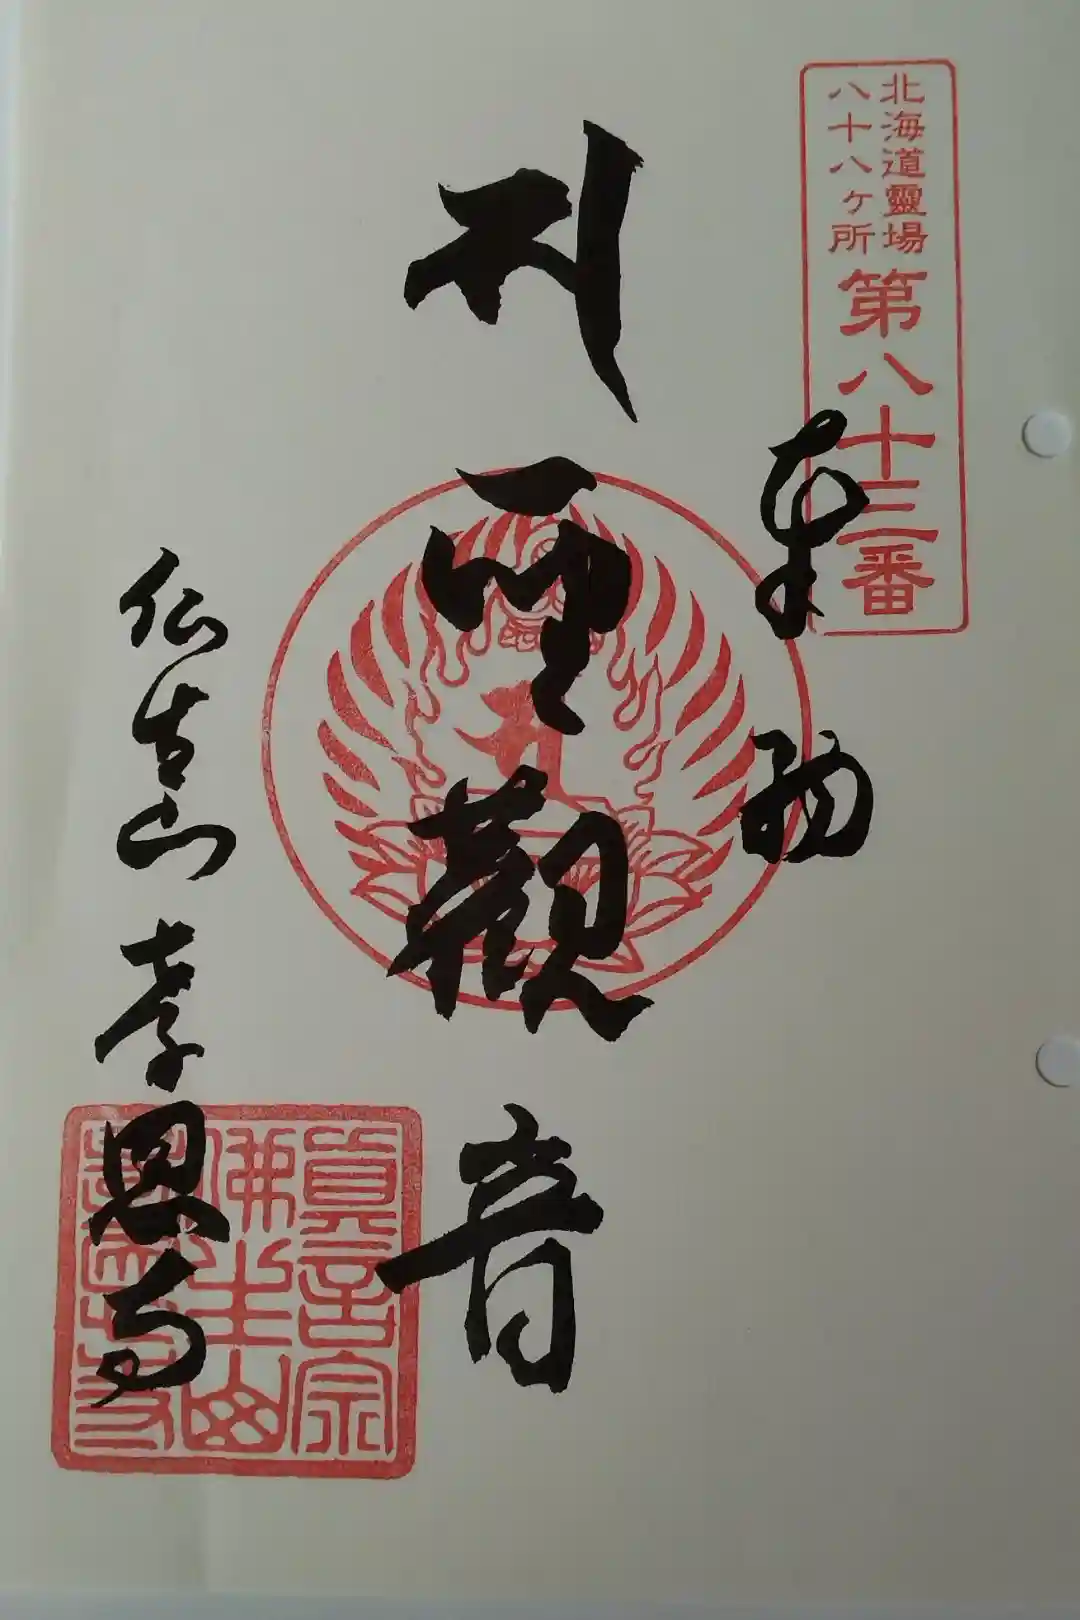 北海道靈場
八十八ヶ所
第八十三番
奉納
聖觀音
仏生山 孝恩寺
眞言宗
佛生山
孝恩寺